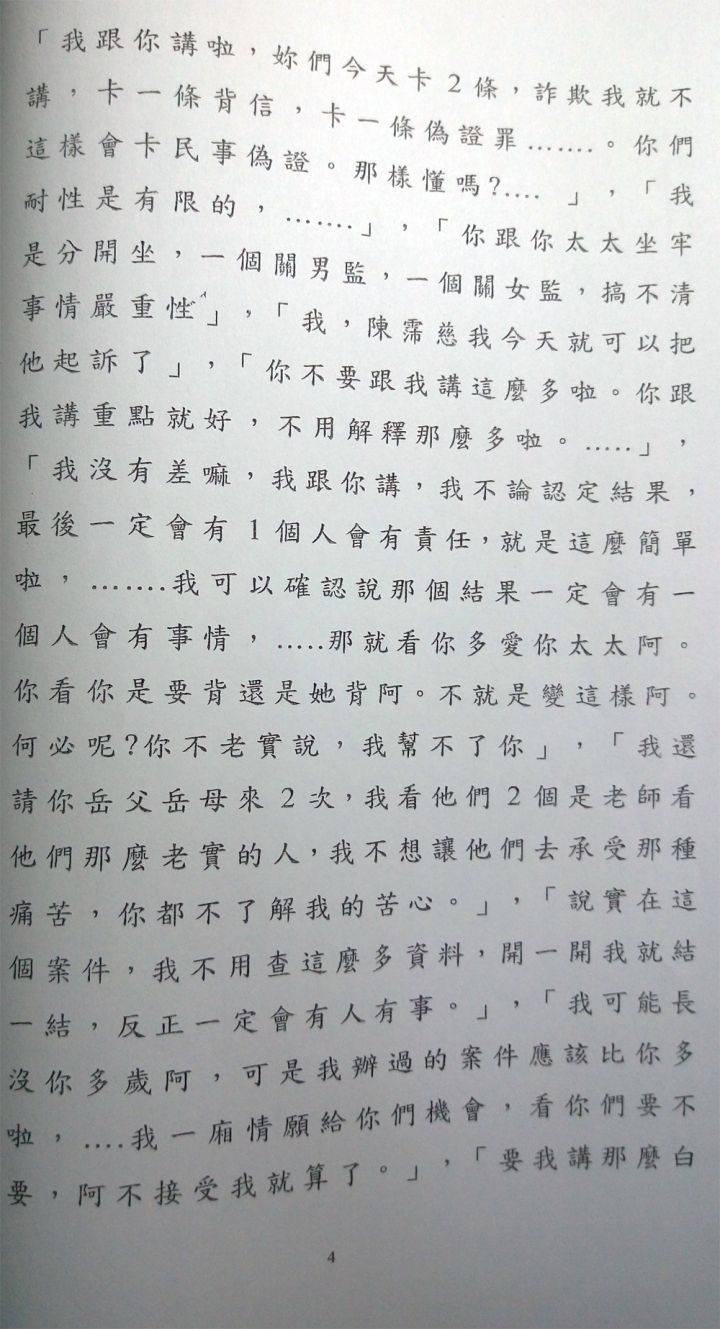 「我跟你講啦，妳們今天卡2條，詐欺我就不
講，卡一條背信，卡一條偽證罪…….。你們
這樣會卡民事偽證。那樣懂嗎?…. 」，「我
耐性是有限的，…….」，「你跟你太太坐牢
是分開坐，一個關男監，一個關女監，搞不清
事情嚴重性」，「我，陳霈慈我今天就可以把
他起訴了」，「你不要跟我講這麼多啦。你跟
我講重點就好，不用解釋那麼多啦。…..」，
「我沒有差嘛，我跟你講，我不論認定結果，
最後一定會有1個人會有責任，就是這麼簡單
啦，…….我可以確認說那個結果一定會有一
個人會有事情，…..那就看你多愛你太太阿。
你看你是要背還是她背阿。不就是變這樣阿。
何必呢?你不老實說，我幫不了你」，「我還
請你岳父岳母來2次，我看他們2個是老師看
他們那麼老實的人，我不想讓他們去承受那種
痛苦，你都不了解我的苦心。」，「說實在這
個案件，我不用查這麼多資料，開一開我就結
一結，反正一定會有人有事。」，「我可能長
沒你多歲阿，可是我辦過的案件應該比你多
啦，….我一廂情願給你們機會，看你們要不
要，阿不接受我就算了。」，「要我講那麼白
4